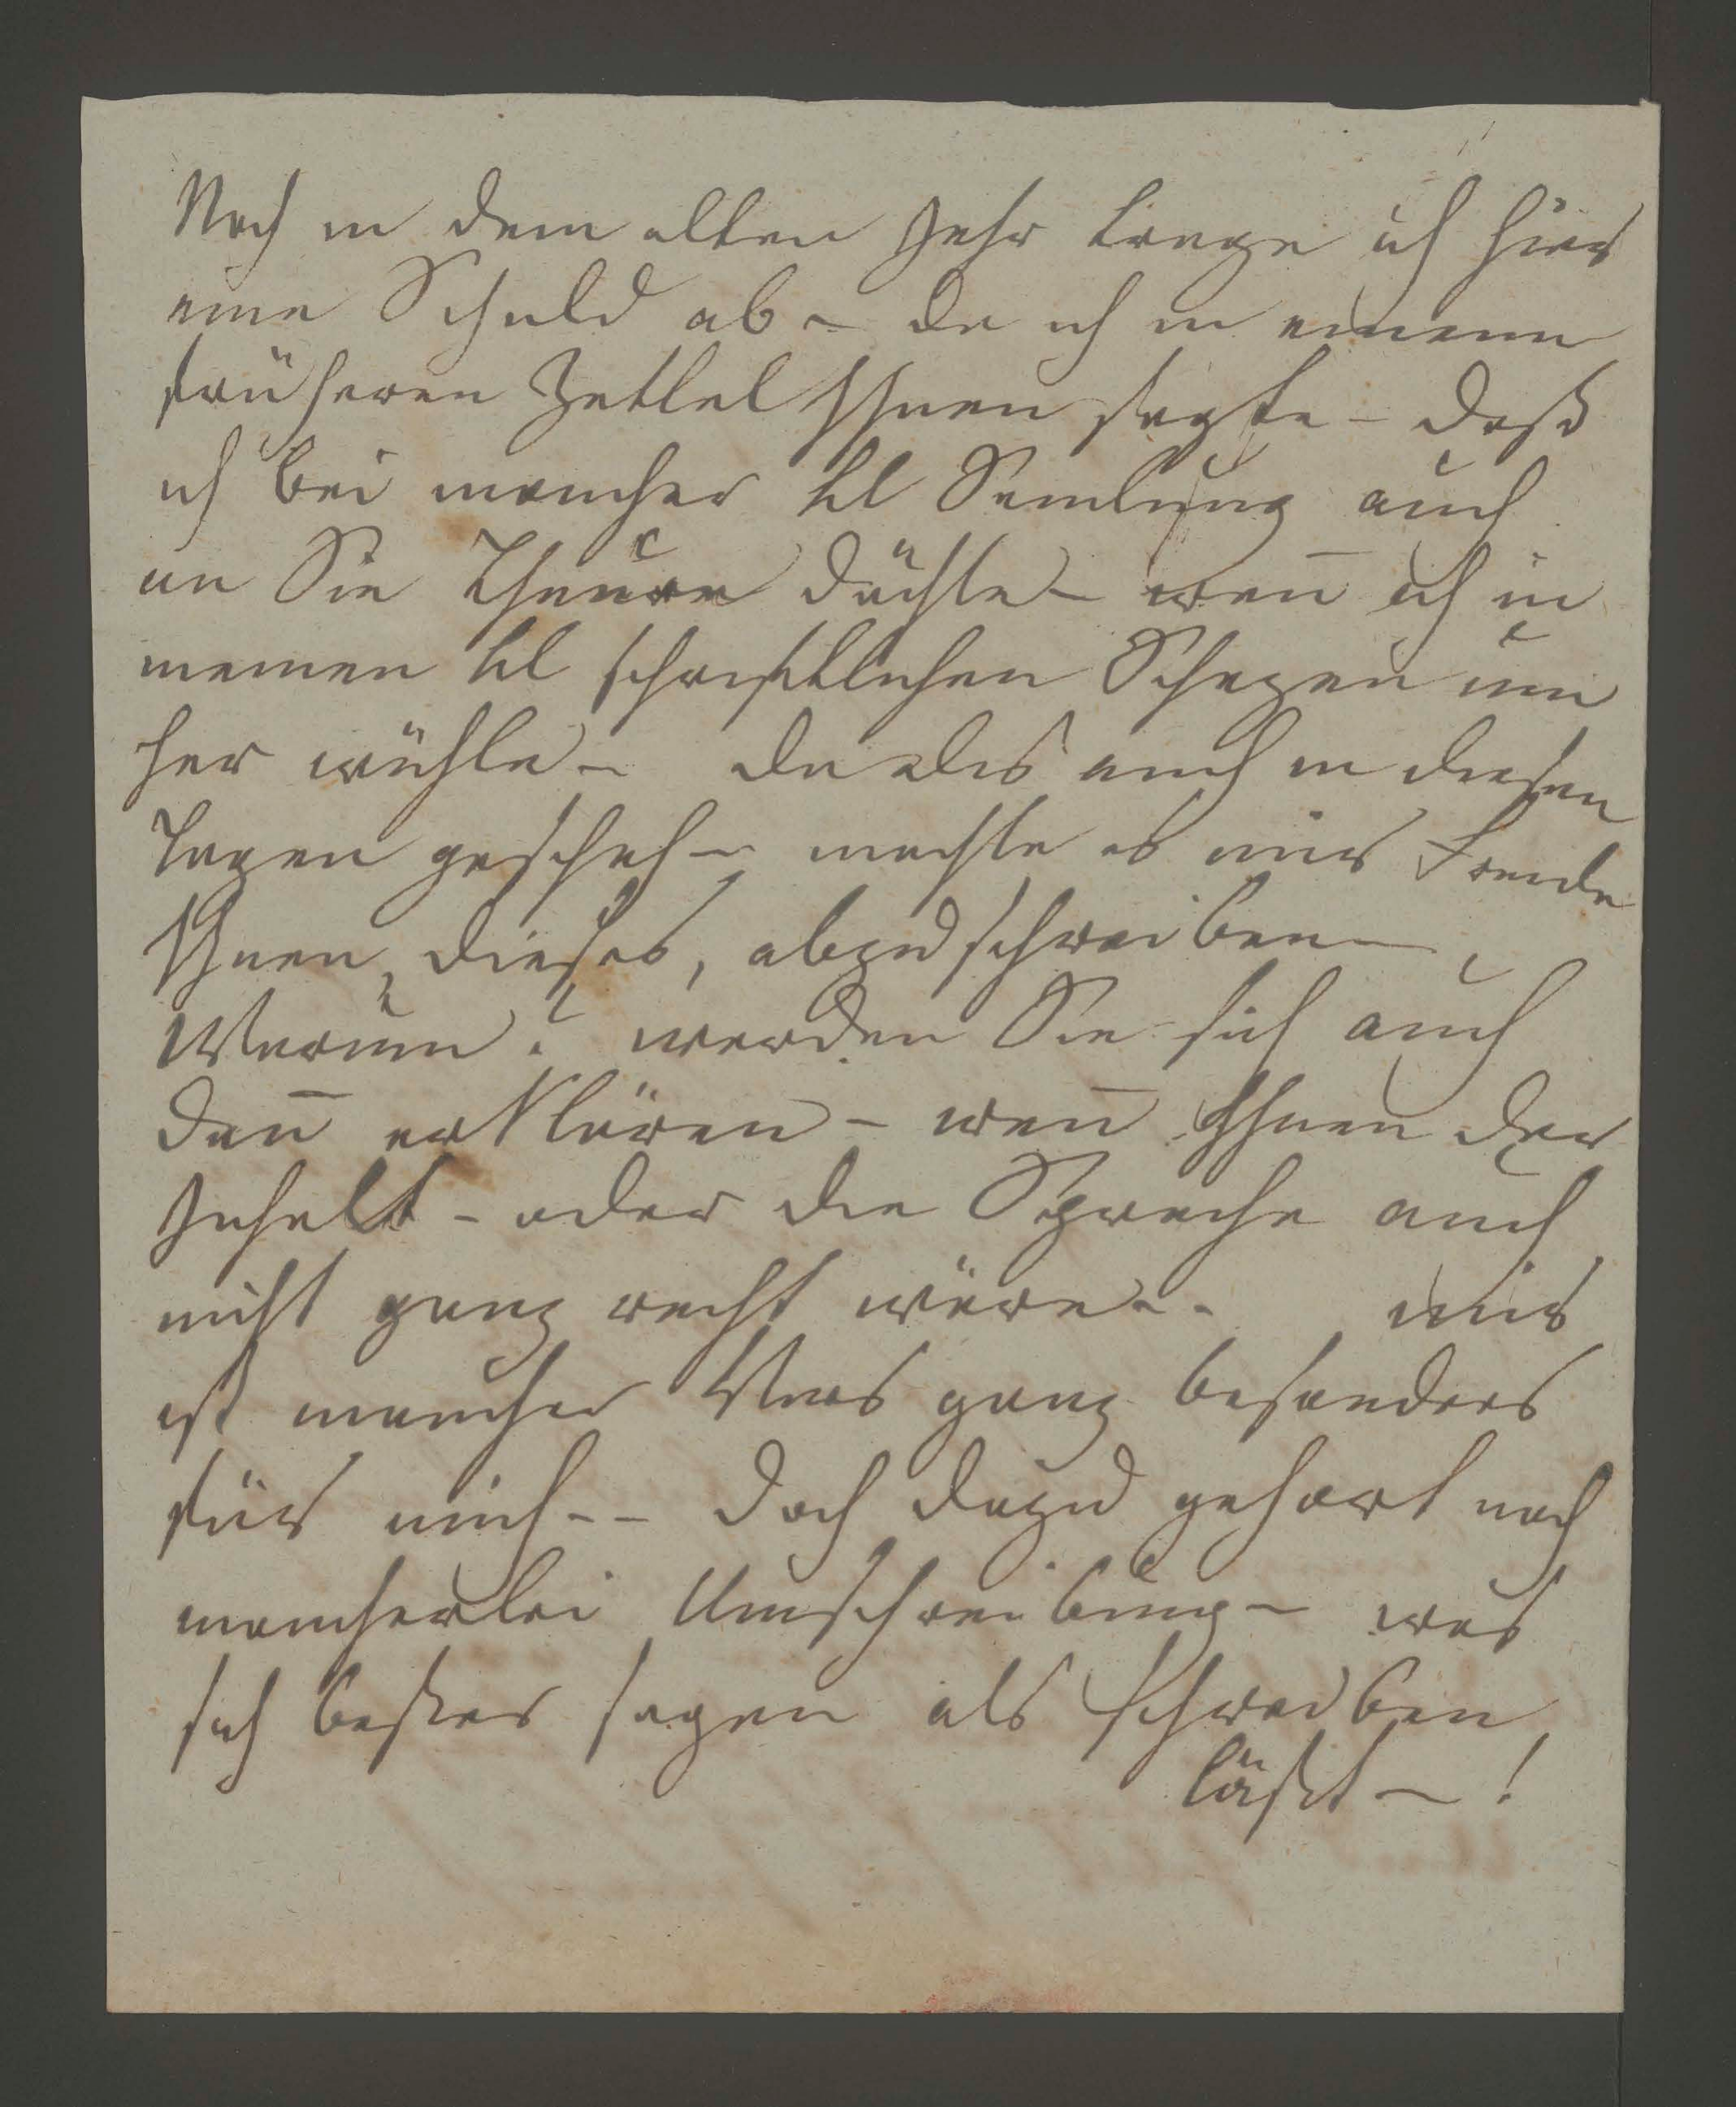 Noch in dem alten Jahr trage ich hier
eine Schuld ab – da ich in einem
früheren Zettel Ihnen sagte – daß
ich bei mancher kl Samlung auch
an Sie Theure dächte – wen̄ ich in
meinen kl schriftlichen Schazen um
her wühle – da dis auch in diesen
Tagen geschah – machte es mir Freude
Ihnen, dieses, abzuschreiben –
Warum? werden Sie sich auch
dan̄ erklären – wen̄ Ihnen der
Inhalt – oder die Sprache auch
nicht ganz recht wäre – – mir
ist mancher Vers ganz besonders
für mich – – doch dazu gehört noch
mancherlei Umschreibung – was
sich beßer sagen als schreiben
läßt – !